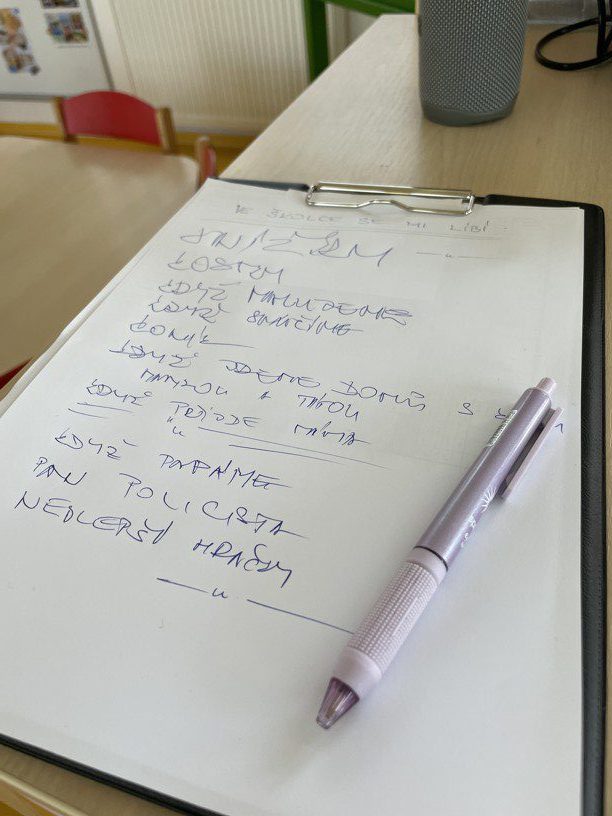 VE ŠKOLCE SE MI LÍBÍ:
KNÍŽKY — " —
KDYŽ MALUJEME
KDYŽ SKÁČEME
KONÍK
KDYŽ JDEME DOMŮ S
MAMKOU A TÁTOU
KDYŽ PŘIJDE MÁMA
— " —
KDYŽ PAPÁME
PAN POLICISTA
NEJLEPŠÍ HRAČKY
— " —